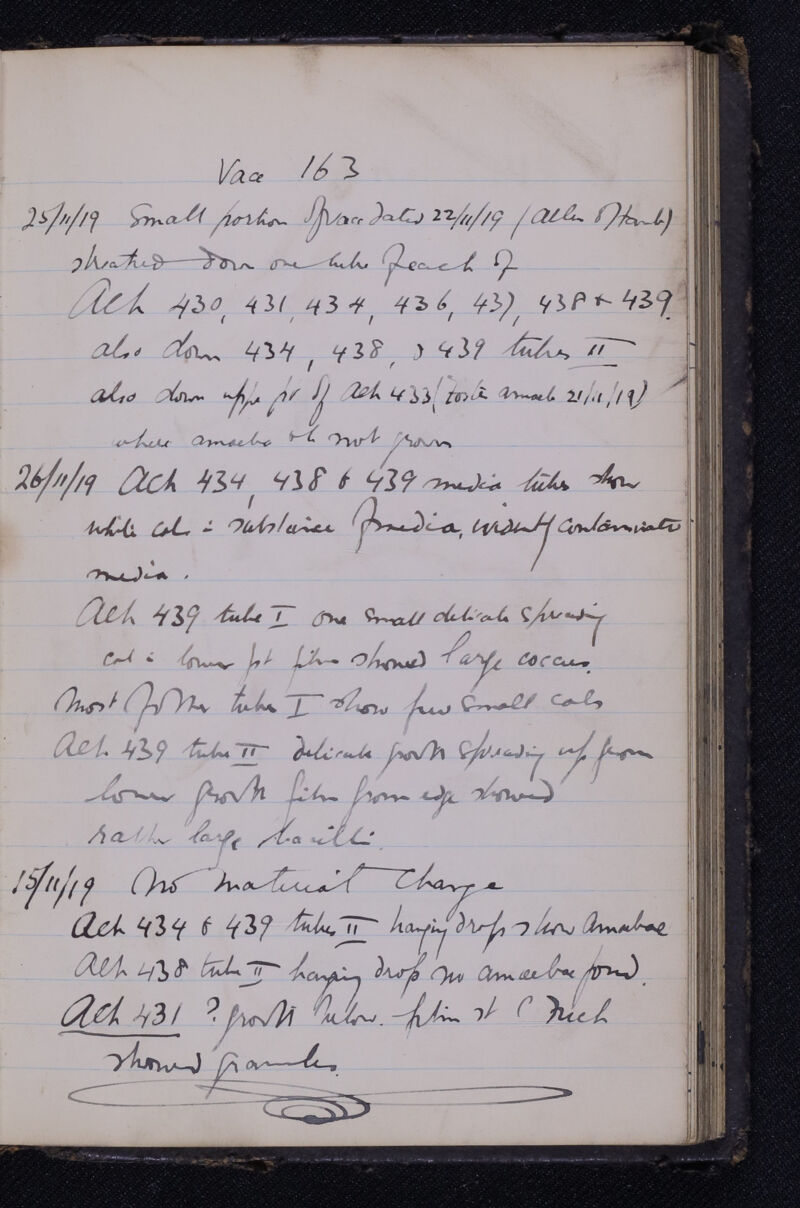 Vacc 163
25/11/19 Small portion of vacc dated 22/11/19 (Allen &
streaked down one tube of each of
Ach 430, 431, 434, 436, 437, 438 & 439.
also down 434, 438, & 439 tubes II
also down upper pt of Ach 433 (Foster amoeb 21/11/19)
where amoeba not grown
26/11/19 Ach 434, 438 & 439 media tubes show
white cols substance of media, evidently contaminate
media.
Ach 439 tube I one small delicate spreading
col lower pt film showed large coccus.
Most of other tubes I show few small cols
Ach 439 tube II delicate growth spreading up from
lower growth film from edge showed
rather large bacilli.
15/11/19 No material change
Ach 434 & 439 tubes II hanging drops show amoebae
Ach 438 tube II hanging drop no amoebae found.
Ach 431 ? growth below. film st
showed granules.